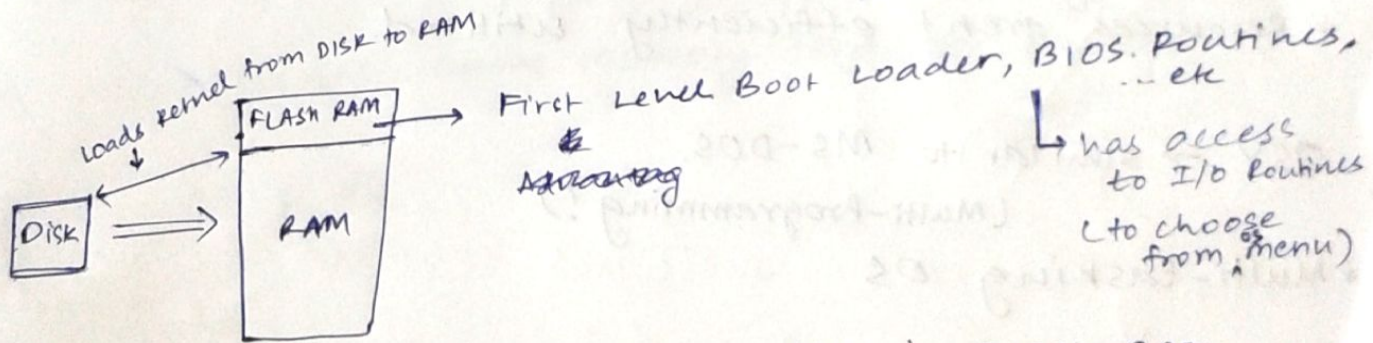 Loads kernel from DISK to RAM
FLASH RAM
First Level Boot Loader, BIOS. Routines,
... etc
has access
to I/O Routines
(to choose
from OS menu)
Disk
RAM